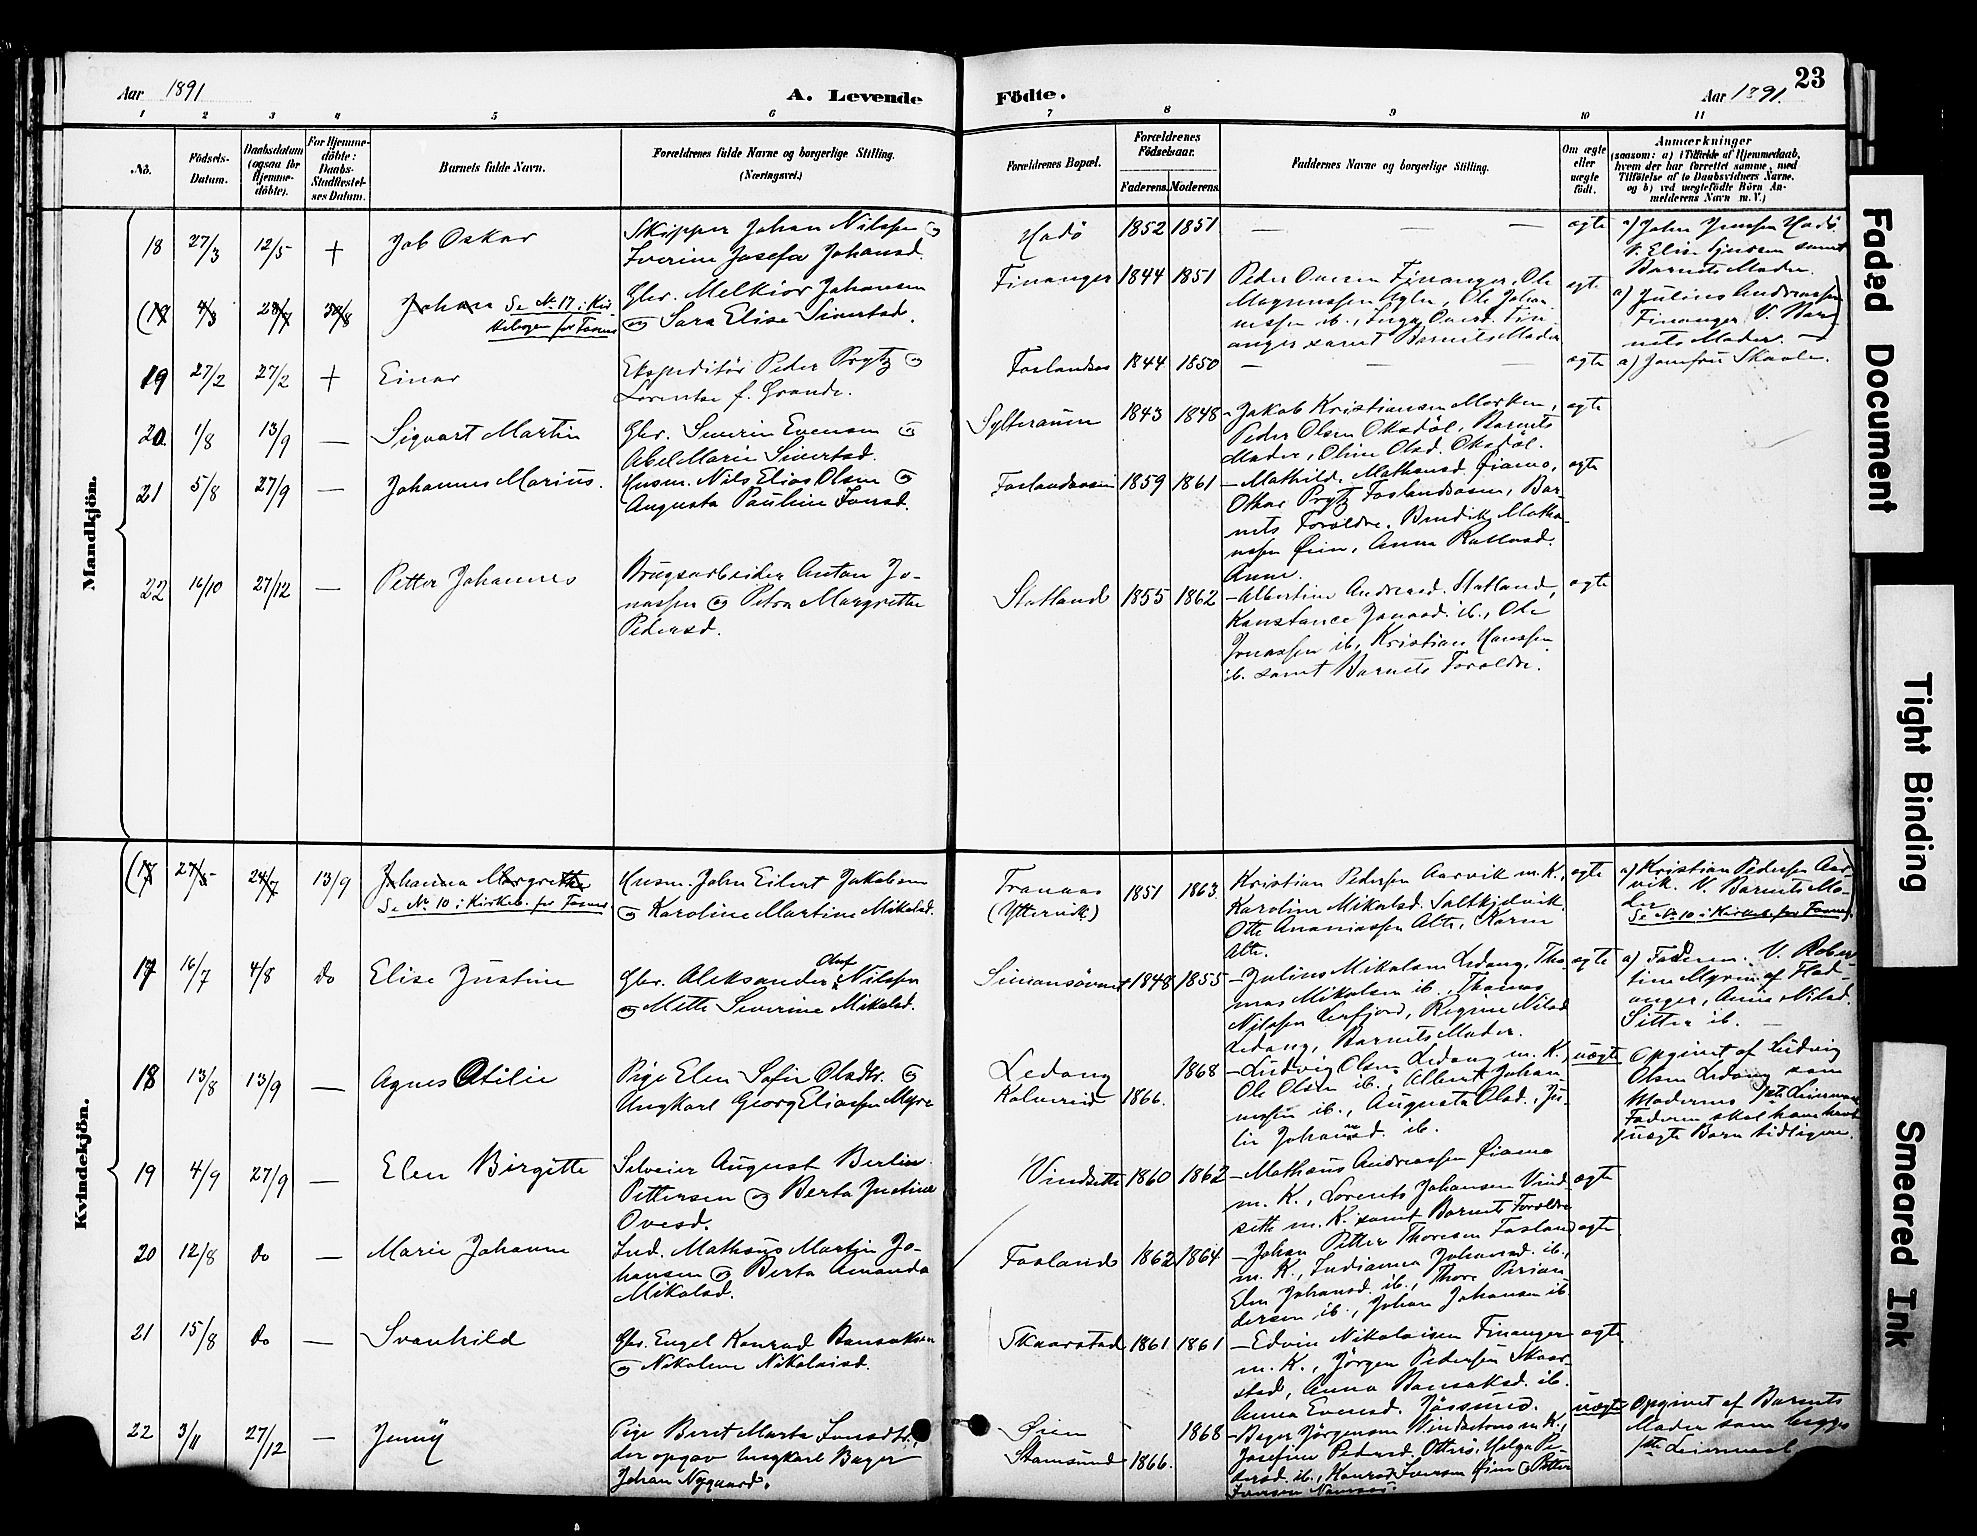 Aar 1891
A. Levende
Födte.
Aar 1891.
23
1 2 3 4 5 6 7 8 9 10 11
No.
Födsels-
Datum.
Daabsdatum
(ogsaa för
Hjemme-
döbte).
For Hjemme-
döbte:
Daabs-
Stadfæstel-
ses Datum.
Barnets fulde Navn.
Forældrenes fulde Navne og borgerlige Stilling.
(Næringsvei.)
Forældrenes Bopæl.
Forældrenes
Födselsaar.
Faderens. Moderens.
Faddernes Navne og borgerlige Stilling.
Om ægte
eller
uægte
født.
Anmærkninger
(saasom: a) i Tilfælde af Hjemmedaab,
hvem der har forrettet samme, med
Tilföielse af to Daabsvidners Navne,
og b) ved uægtefödte Börn An-
melderens Navn m. V.)
Mandkjön.
18 27/3 12/5 + Job Oskar
Skipper Johan Nilssen og
Iverine Josefa Johansd.
Hadö 1852 1851 — — — ægte
a) John Jenssen Hadö
Barnets Moder.
(17 4/3 Johan Se No. 17 i Kir-
kebogen for Fosnes
Gbr. Melkior Johansen
og Sara Elise Sivertsd.
Finanger 1844 1851
Peder Ovesen Finanger, Ole
Magnussen Agle, Ole Johan-
nessen ib., Inga Ovesd. Fin-
anger samt Barnets Moder
ægte
a) Julius Andreassen
Finanger V. Bar-
nets Moder. —
19 27/2 27/2 + Einar
Ekspeditör Peder Prytz og
Lorentse f. Grande.
Foslandsos 1844 1850 — — — ægte
a) Jomfru Skaale.
20. 1/8 13/9 — Sigvart Martin
Gbr. Severin Evensen og
Abel Marie Sivertsd.
Sylteraunen 1843 1848
- Jakob Kristiansen Morken,
Peder Olsen Oksdöl, Barnets
Moder, Oline Olsd. Oksdöl.
ægte
21 5/8 27/9 — Johannes Marius.
Husm. Nils Elias Olsen og
Augusta Pauline Iversd.
Foslandsosen 1859 1861
- Mathilde Matheusd. Öiamo,
Othar Prytz Foslandsosen, Bar-
nets Forældre. Bendik Mathe-
ussen Öien, Anna
Anne.
ægte
22 16/10 27/12 — Petter Johannes
Brugsarbeider Anton Jo-
nassen og Petra Margrethe
Pedersd.
Statland 1855 1862
- Albertine Andreasd. Statland,
Konstance Jonasd. ib., Ole
Jonassen ib., Kristian Hanssen
ib. samt Barnets Forældre.
ægte
Kvindekjön.
(17 24/7 13/9 Johanna Margrethe
Se No. 10 i Kirkeb. for Fosnes
Husm. John Eilert Jakobsen
og Karoline Martine Mikalsd.
Tranaas
(Yttervik) 1851 1863.
Kristian Pedersen Aarvik m. K.,
Karoline Mikalsd. Saltkjelvik,
Otte Ananiassen Alte, Karen
Alte.
ægte
a) Kristian Pedersen Aar-
vik. V. Barnets Mo-
der
Se No. 10 i Kirkeb. for Fosnes)
17 16/7 4/8 do Elise Justine
Gbr. Aleksander Oluf Nilssen
og Mette Severine Mikalsd.
Simansövaret 1848 1855
- Julius Mikalsen Ledang, Tho-
mas Mikalsen ib., Thomas
Nilssen Lerfjord, Regine Nilsd.
Ledang, Barnets Moder.
ægte
a) Faderen. V. Rober-
tine Myren af Flad-
anger, Anna Nilsd.
Sitter ib. —
18 13/8 13/9 — Agnes Otilie
Pige Elen Sofie Olsdtr. og
Ungkarl Georg Eliassen Myre
Ledang 1868
Kolvereid 1866.
- Ludvig Olsen Ledang m. K.,
Ole Olsen ib., Albert Johan-
nessen ib., Augusta Olsd., Ju-
lie Johannesd. ib.
uægte
Opgivet af Ludvig
Olsen Ledang som
Moderens 1ste Leiermaal
Faderen skal have havt
uægte Barn tidligere.
19 4/9 27/9 — Elen Birgitte
Selveier August Berlin
Pettersen og Berta Justine
Ovesd.
Vindsette 1860 1862
- Mathæus Andreassen Öiamo
m. K., Lorents Johansen Vind-
sette m. K. samt Barnets Forældre
ægte
20 12/8 do — Marie Johanne
Ind. Mathæus Martin Jo-
hansen og Berta Amanda
Mikalsd.
Fosland 1862 1864
- Johan Petter Thoresen Fosland
m. K., Indianna Johansd. ib.,
Elen Johansd. ib., Thore
dersen ib., Johan Johansen ib.
ægte
21 15/8 do — Svanhild
Gbr. Engel Konrad Bensaksen
og Nikoline Nikolaisd.
Skaarstad 1861 1861
- Edvin Nikolaisen Finanger
m. K., Jörgen Pedersen Skaar-
stad, Anna Bensaksd. ib.
Anna Evensd. Jössund.
ægte
22 3/11 27/12 — Jenny
Pige Beret Marta Iversdtr.,
der opgav Ungkarl Bager
Johan Nygaard.
Öien - 1868
Stamsund 1866.
- Bager Jörgensen Vindsetmo m. K.,
Josefine Pedersd. Otterö, Helga Pe-
dersd. ib., Konrad Iversen Öien og Petter
Iversen Namsos.
uægte
Opgivet af Barnets
Moder som begges
1ste Leiermaal
Faded Document
Tight Binding
Smeared Ink